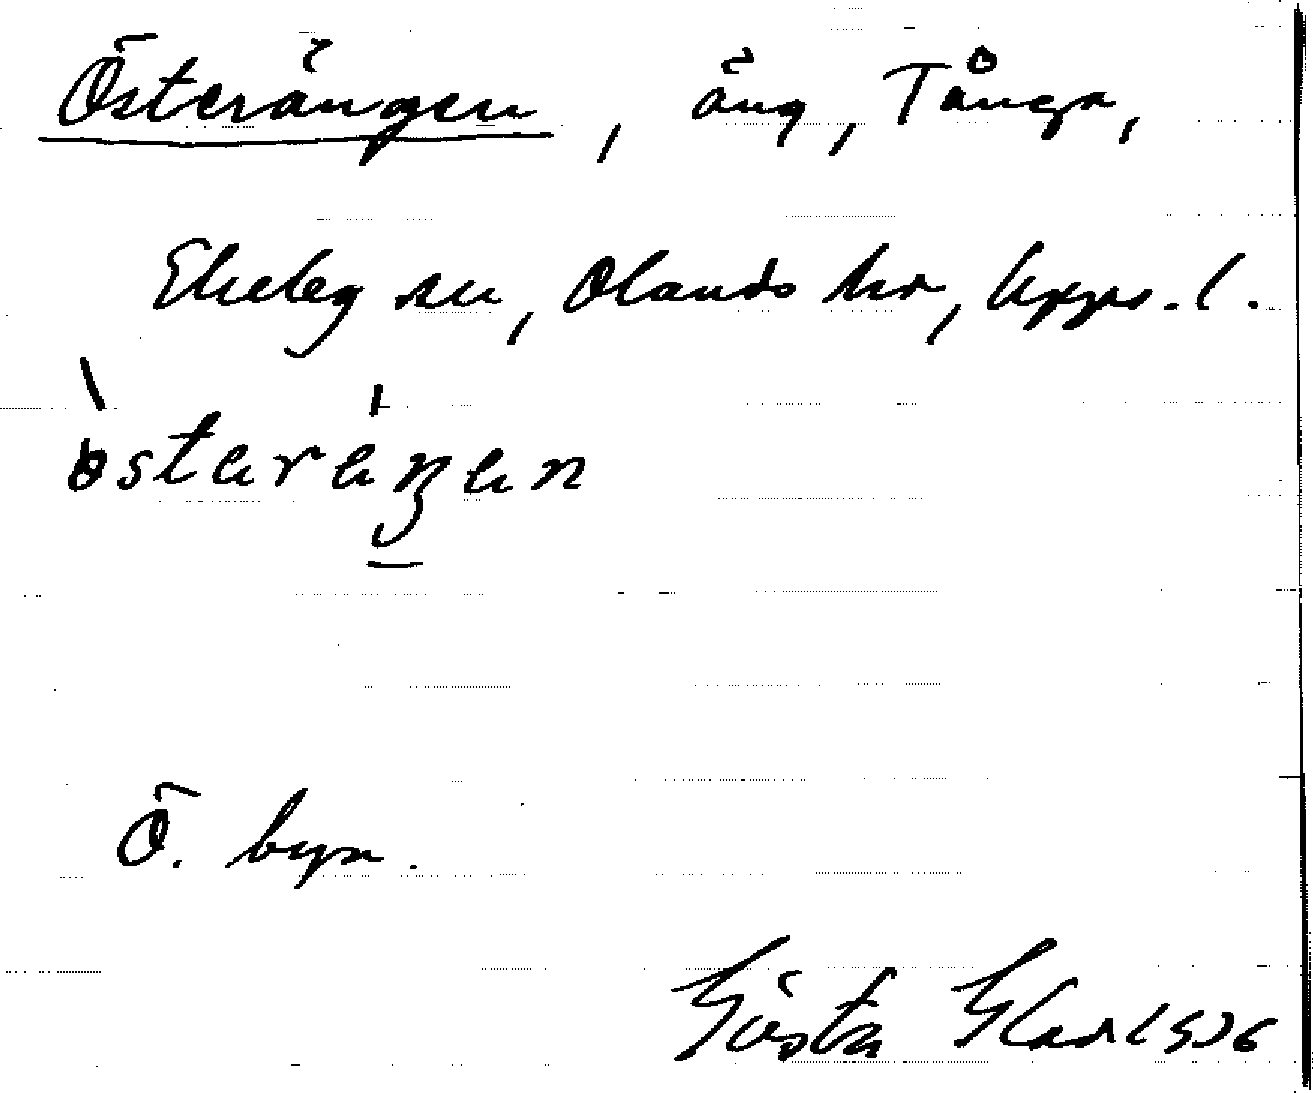 Österängen, äng, Tånga,
Ekeby sn, Olands hd, Upps. l.
Ö. byn.
Gösta